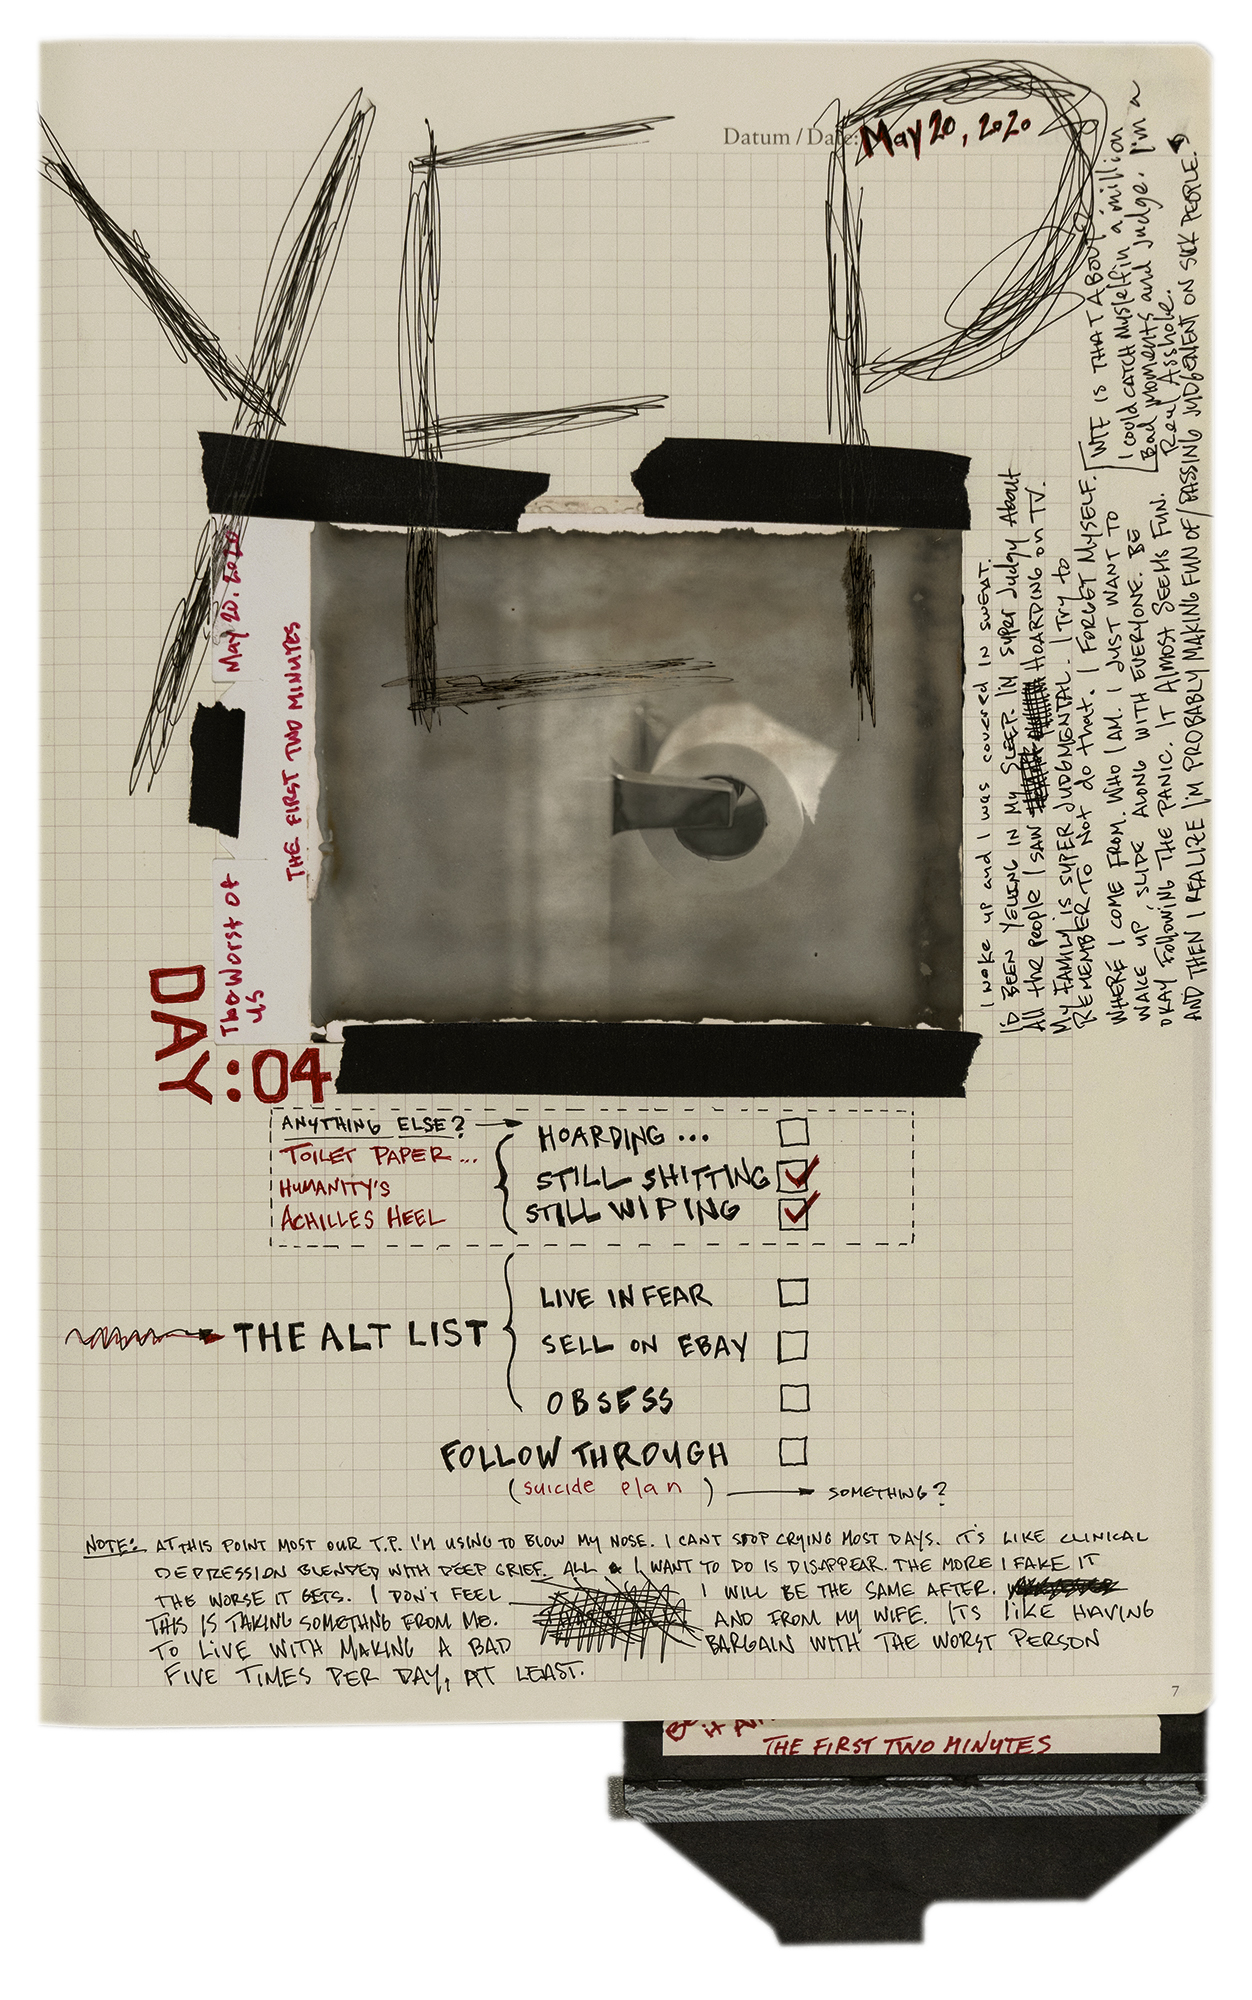 YEP
Datum / Date: May 20, 2020
May 20. 2020
THE FIRST TWO MINUTES
The Worst of
us
DAY:04
I woke up and I was covered in sweat.
I'D BEEN YELLING IN My SLEEP. I'M super Judgy About
All the people I SAW HOARDING on TV.
My FAMILY IS SUPER JUDGMENTAL. I Try to
REMEMBER TO Not do that. I FORGET MYSELF.
WHERE I COME FROM. WHO I AM. I JUST WANT TO
WAKE UP, SLIDE ALONG WITH EVERYONE. BE
OKAY Following THE PANIC. IT Almost SEEMS FUN.
AND THEN I REALIZE I'M PROBABLY MAKING FUN OF/PASSING JUDGEMENT ON SICK PEOPLE.
WTF IS THAT ABOUT?
I could CATCH Myself in a million
Bad Moments and Judge. I'm a
Real Asshole.
ANYTHING ELSE?
TOILET PAPER...
HUMANITY'S
ACHILLES HEEL
HOARDING...
STILL SHITTING
STILL WIPING
THE ALT LIST
LIVE IN FEAR
SELL ON EBAY
OBSESS
FOLLOW THROUGH
(suicide plan) SOMETHING?
NOTE: AT THIS POINT MOST OUR T.P. I'M USING TO BLOW MY NOSE. I CANT STOP CRYING MOST DAYS. IT'S LIKE CLINICAL
DEPRESSION BLENDED WITH DEEP GRIEF. ALL I WANT TO DO IS DISAPPEAR. THE MORE I FAKE IT
THE WORSE IT GETS. I DON'T FEEL I WILL BE THE SAME AFTER.
THIS IS TAKING SOMETHNG FROM ME. AND FROM MY WIFE. ITS LIKE HAVING
TO LIVE WITH MAKING A BAD BARGAIN WITH THE WORST PERSON
FIVE TIMES PER DAY, AT LEAST.
7
THE FIRST TWO MINUTES